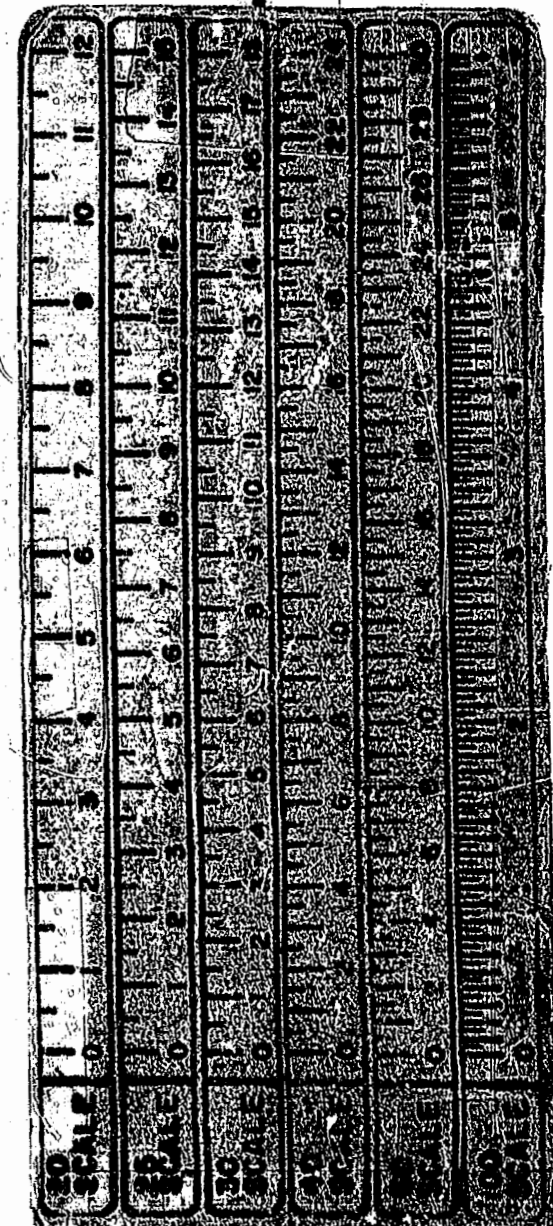 20
SCALE 0 1 2 3 4 5 6 7 8 9 10 11 12
25
SCALE 0 1 2 3 4 5 6 7 8 9 10 11 12 13 14 15
30
SCALE 0 1 2 3 4 5 6 7 8 9 10 11 12 13 14 15 16 17 18
40
SCALE 0 2 4 6 8 10 12 14 16 18 20 22 24
SCALE 0 2 4 6 8 10 12 14 16 18 20 22 24 26 28 30
SCALE 0 2 3 4